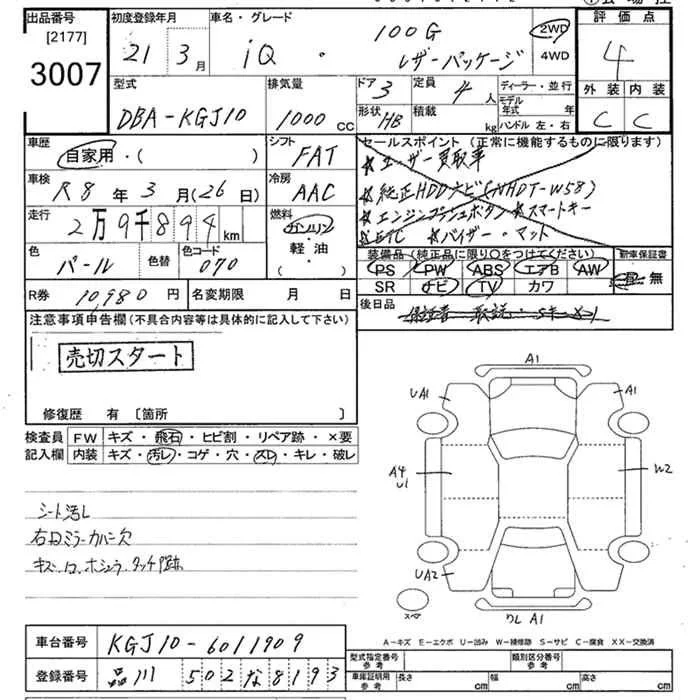 出品番号 初度登録年月 車名・グレード 評価点
[2177] 21 3月 iQ ・ 100G 2WD 4
3007 レザーパッケージ 4WD
型式 排気量 ドア 3 定員 4人 ディーラー・並行 外装 内装
DBA-KGJ10 1000 CC 形状 HB 積載 kg モデル年式 年 C C
ハンドル 左・右
車歴 自家用・( ) シフト FAT セールスポイント (正常に機能するものに限ります)
★ユーザー買取車
車検 R8年 3月(26日) 冷房 AAC ★純正HDDナビ(NHDT-W58)
走行 2万9千894km 燃料 ガソリン ★エンジンプッシュボタン ★スマートキー
軽油 ★ETC ★バイザー・マット
色 パール 色替 色コード 070 ・( ) 装備品 (純正品に限り○をつけてください) 新車保証書
PS PW ABS エアB AW 有・無
SR ナビ TV カワ
R券 10,980円 名変期限 月 日 後日品
保証書 取説・
注意事項申告欄(不具合内容等は具体的に記入して下さい)
売切スタート
修復歴 有 〔箇所 〕
検査員 FW キズ・飛石・ヒビ割・リペア跡・×要
記入欄 内装 キズ・汚レ・コゲ・穴・スレ・キレ・破レ
シート汚レ
右ドミラーカバー欠
キズ
A1
UA1 A1
A4 W2
U1
UA2
スペア ワレ A1
A-キズ E-エクボ U-凹み W-補修跡 S-サビ C-腐食 XX-交換済
車台番号 KGJ10-6011909
型式指定番号 参考 類別区分番号 参考
登録番号 品川 502 な 8193
車庫証明用 参考 長さ cm 幅 cm 高さ cm